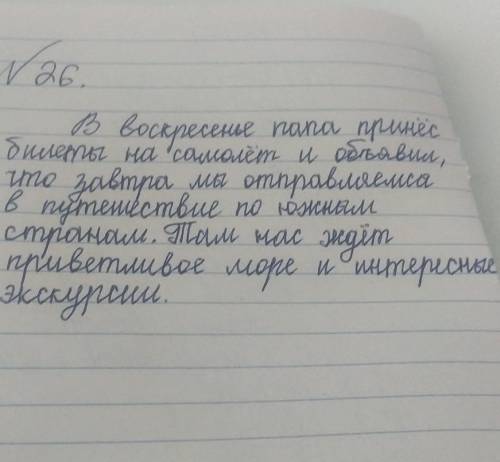 № 26.
В воскресенье папа принёс
билеты на самолёт и объявил,
что завтра мы отправляемся
в путешествие по южным
странам. Там нас ждёт
приветливое море и интересные
экскурсии.